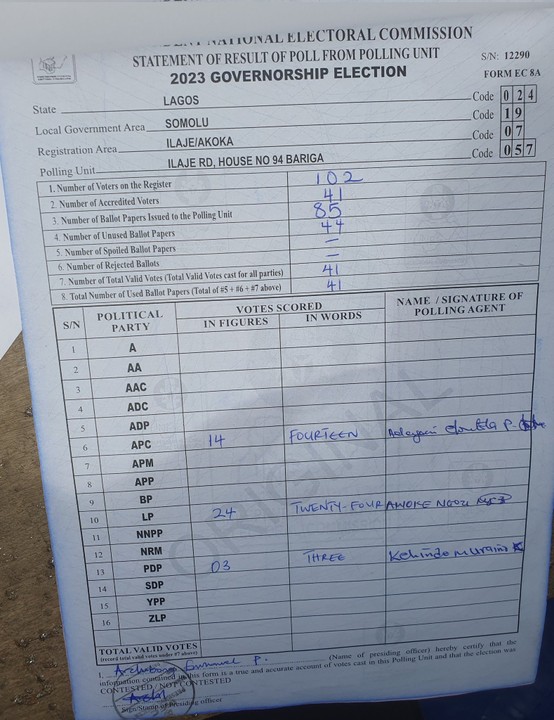 NATIONAL ELECTORAL COMMISSION
STATEMENT OF RESULT OF POLL FROM POLLING UNIT
S/N: 12290
2023 GOVERNORSHIP ELECTION
FORM EC 8A
State LAGOS Code 024
Local Government Area SOMOLU Code 19
Registration Area ILAJE/AKOKA Code 07
Polling Unit ILAJE RD, HOUSE NO 94 BARIGA Code 057
1. Number of Voters on the Register 102
2. Number of Accredited Voters 41
3. Number of Ballot Papers Issued to the Polling Unit 85
4. Number of Unused Ballot Papers 44
5. Number of Spoiled Ballot Papers –
6. Number of Rejected Ballots –
7. Number of Total Valid Votes (Total Valid Votes cast for all parties) 41
8. Total Number of Used Ballot Papers (Total of #5 + #6 + #7 above) 41
S/N POLITICAL PARTY VOTES SCORED IN FIGURES IN WORDS NAME / SIGNATURE OF POLLING AGENT
1 A
2 AA
3 AAC
4 ADC
5 ADP
6 APC 14 FOURTEEN
7 APM
8 APP
9 BP
10 LP 24 TWENTY-FOUR AWOKE NGOZI
11 NNPP
12 NRM
13 PDP 03 THREE Kehinde Muraino
14 SDP
15 YPP
16 ZLP
ORIGINAL
TOTAL VALID VOTES
(record total valid votes under #7 above)
I, Emmanuel P. (Name of presiding officer) hereby certify that the
information contained in this form is a true and accurate account of votes cast in this Polling Unit and that the election was
CONTESTED / NOT CONTESTED
Sign/Stamp of Presiding officer